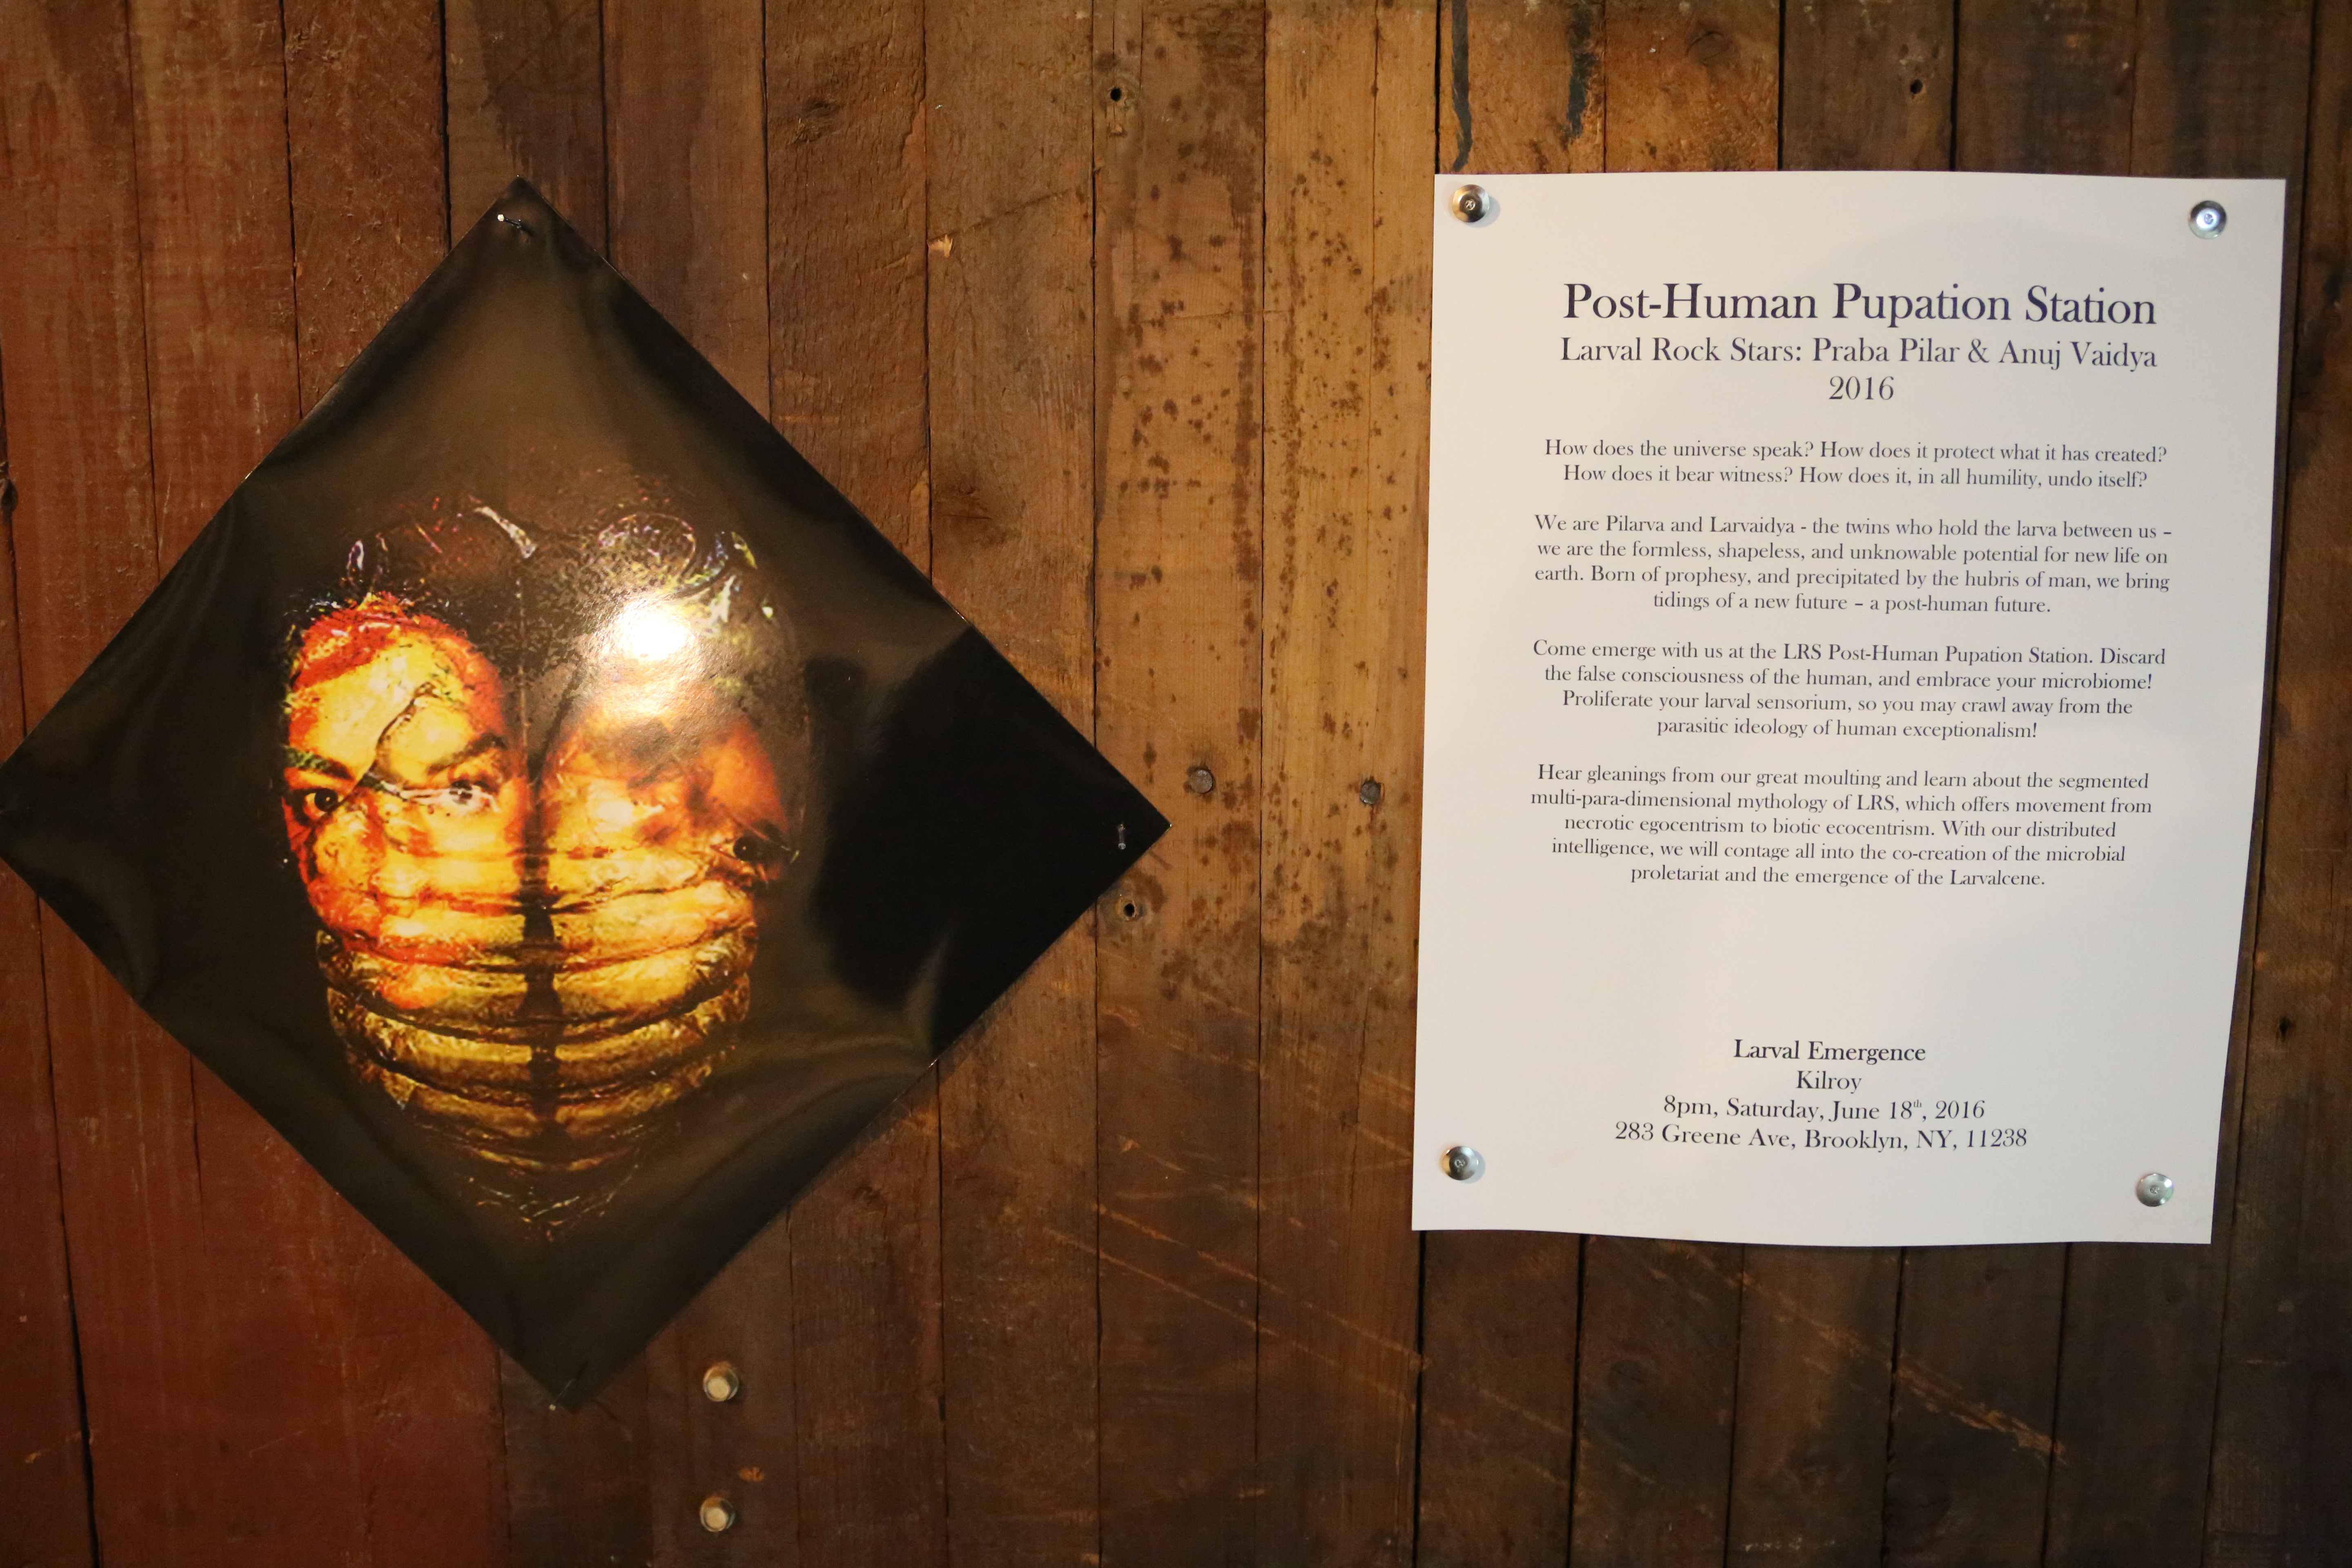 Post-Human Pupation Station
Larval Rock Stars: Praba Pilar & Anuj Vaidya
2016
How does the universe speak? How does it protect what it has created?
How does it bear witness? How does it, in all humility, undo itself?
We are Pilarva and Larvaidya - the twins who hold the larva between us –
we are the formless, shapeless, and unknowable potential for new life on
earth. Born of prophesy, and precipitated by the hubris of man, we bring
tidings of a new future – a post-human future.
Come emerge with us at the LRS Post-Human Pupation Station. Discard
the false consciousness of the human, and embrace your microbiome!
Proliferate your larval sensorium, so you may crawl away from the
parasitic ideology of human exceptionalism!
Hear gleanings from our great moulting and learn about the segmented
multi-para-dimensional mythology of LRS, which offers movement from
necrotic egocentrism to biotic ecocentrism. With our distributed
intelligence, we will contage all into the co-creation of the microbial
proletariat and the emergence of the Larvalcene.
Larval Emergence
Kilroy
8pm, Saturday, June 18th, 2016
283 Greene Ave, Brooklyn, NY, 11238